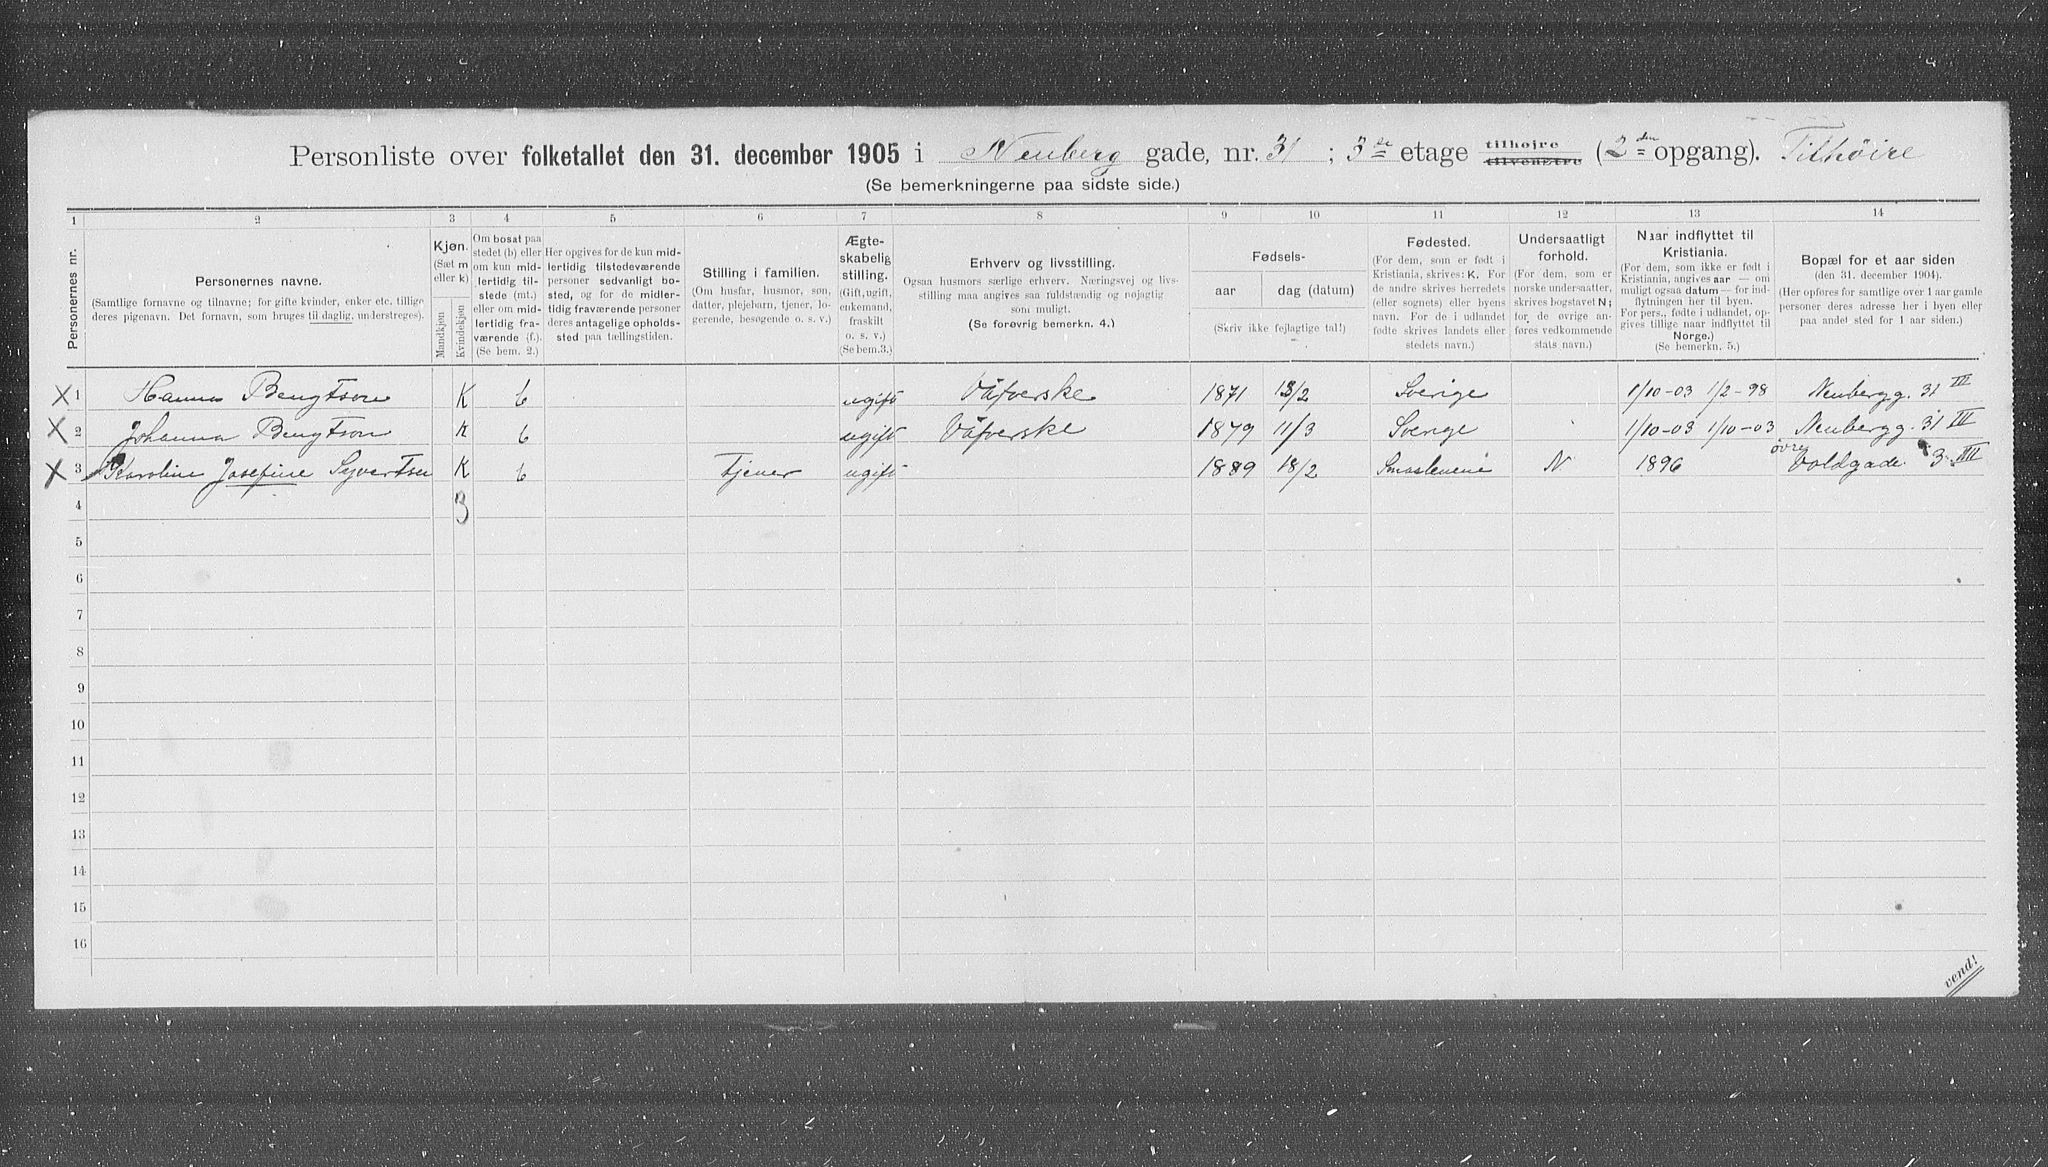 Personliste over folketallet den 31. december 1905 i Neuberg gade, nr. 31 ; 3de etage tilhøjre tilvenstre (2den opgang). Tilhøire
(Se bemerkningerne paa sidste side.)
1 2 3 4 5 6 7 8 9 10 11 12 13 14
Personernes nr.
Personernes navne.
(Samtlige fornavne og tilnavne; for gifte kvinder, enker etc. tillige
deres pigenavn. Det fornavn, som bruges til daglig, understreges).
Kjøn.
(Sæt m
eller k)
Mandkjøn
Kvindekjøn
Om bosat paa
stedet (b) eller
om kun mid-
lertidig til-
stede (mt.)
eller om mid-
lertidig fra-
værende (f.).
(Se bem. 2.)
Her opgives for de kun mid-
lertidig tilstedeværende
personer sedvanligt bo-
sted, og for de midler-
tidig fraværende personer
deres antagelige opholds-
sted paa tællingstiden.
Stilling i familien.
(Om husfar, husmor, søn,
datter, plejebarn, tjener, lo-
gerende, besøgende o. s. v.)
Ægte-
skabelig
stilling.
(Gift, ugift,
enkemand,
fraskilt
o. s. v.)
(Se bem.3.)
Erhverv og livsstilling.
Ogsaa husmors særlige erhverv. Næringsvej og livs-
stilling maa angives saa fuldstændig og nøjagtig
som muligt.
(Se forøvrig bemerkn. 4.)
Fødsels-
aar
dag (datum)
(Skriv ikke fejlagtige tal!)
Fødested.
(For dem, som er født i
Kristiania, skrives: K. For
de andre skrives herredets
(eller sognets) eller byens
navn. For de i udlandet
fødte skrives landets eller
stedets navn.)
Undersaatligt
forhold.
(For dem, som er
norske undersaatter,
skrives bogstavet N;
for de øvrige an-
føres vedkommende
stats navn.)
Naar indflyttet til
Kristiania.
(For dem, som ikke er født i
Kristiania, angives aar — om
muligt ogsaa datum — for ind-
flytningen her til byen.
For pers., fødte i udlandet, op-
gives tillige naar indflyttet til
Norge.)
(Se bemerkn. 5.)
Bopæl for et aar siden
(den 31. december 1904).
(Her opføres for samtlige over 1 aar gamle
personer deres adresse her i byen eller
paa andet sted for 1 aar siden.)
X 1 Hanna Bengtson K b ugift Väfverske 1871 13/2 Sverige 1/10-03 1/2-98 Neubergg. 31 III
X 2 Johanna Bengtson K b ugift Väfverske 1879 11/3 Sverige 1/10-03 1/10-03 Neubergg. 31 III
X 3 Karoline Josefine Syvertsen K b Tjener ugift 1889 18/2 Smaalenene N 1896 øvre Voldgade 3 III
4 3
5
6
7
8
9
10
11
12
13
14
15
16
vend!